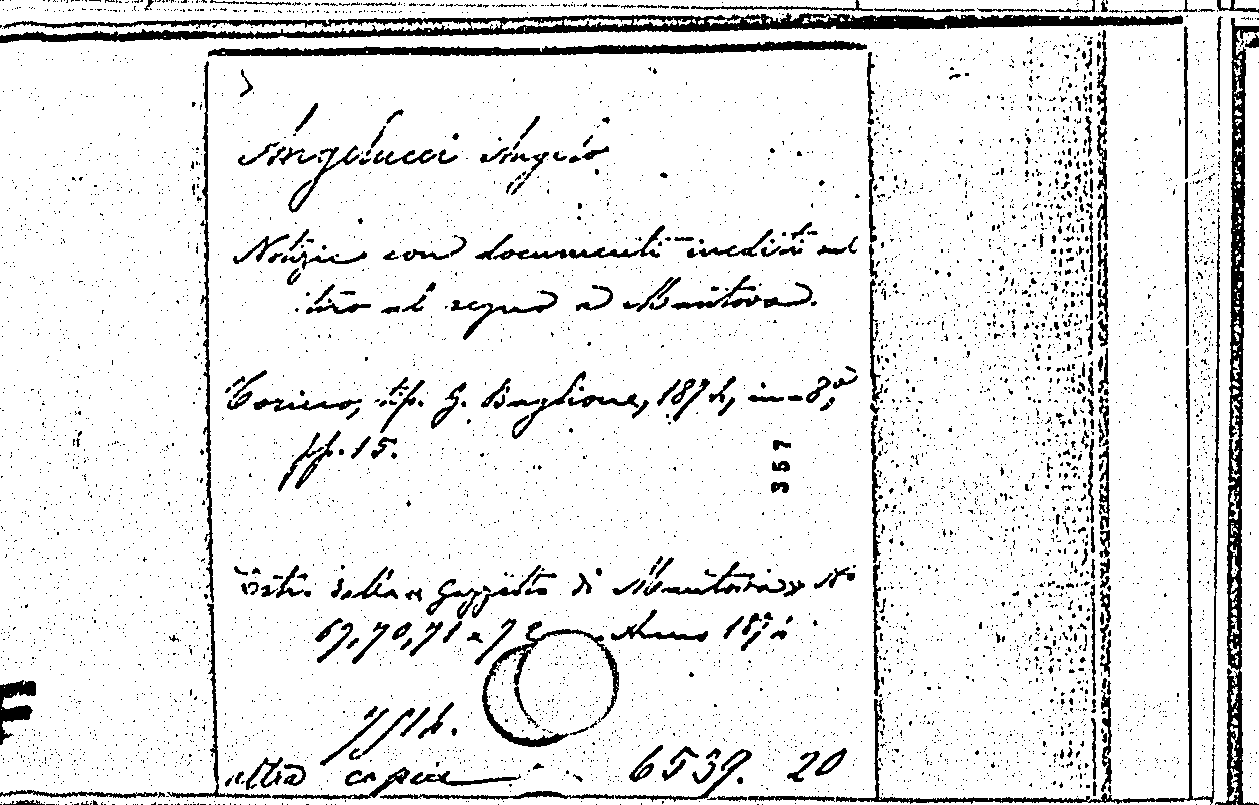 Angelucci Angelo
Notizie con documenti inediti sul
tiro al segno a Mantova.
Torino, tip. G. Baglione, 1874, in-8°,
pp. 15.
357
Estr. dalla « Gazzetta di Mantova » N.
69, 70, 71 e 72 . Anno 187
altra copia 6539. 20